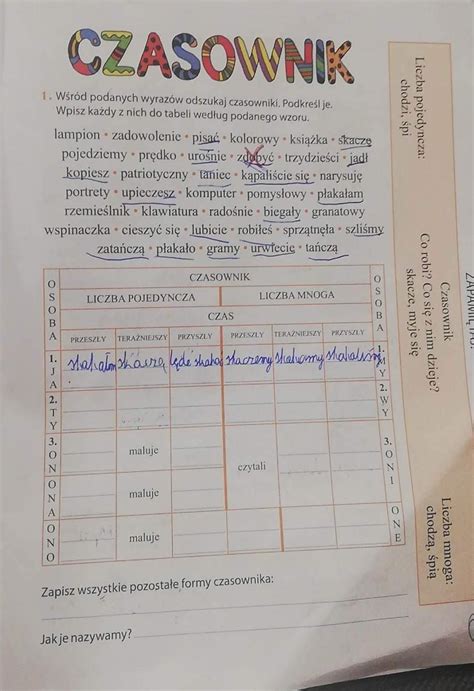 CZASOWNIK
1. Wśród podanych wyrazów odszukaj czasowniki. Podkreśl je.
Wpisz każdy z nich do tabeli według podanego wzoru.
lampion • zadowolenie • pisać • kolorowy • książka • skaczę
pojedziemy • prędko • urośnie • zdobyć • trzydzieści • jadł
kopiesz • patriotyczny • taniec • kąpaliście się • narysuję
portrety • upieczesz • komputer • pomysłowy • płakałam
rzemieślnik • klawiatura • radośnie • biegały • granatowy
wspinaczka • cieszyć się • lubicie • robiłeś • sprzątnęła • szliśmy
zatańczą • płakało • gramy • urwiecie • tańczą
OSOBA CZASOWNIK OSOBA
LICZBA POJEDYNCZA LICZBA MNOGA
CZAS
PRZESZŁY TERAŹNIEJSZY PRZYSZŁY PRZESZŁY TERAŹNIEJSZY PRZYSZŁY
1. JA 1. MY
2. TY 2. WY
3. ON maluje czytali 3. ONI
ONA maluje
ONO maluje ONE
Zapisz wszystkie pozostałe formy czasownika:
Jak je nazywamy?
Liczba pojedyncza:
chodzi, śpi
Czasownik
Co robi? Co się z nim dzieje?
skacze, myje się
Liczba mnoga:
chodzą, śpią